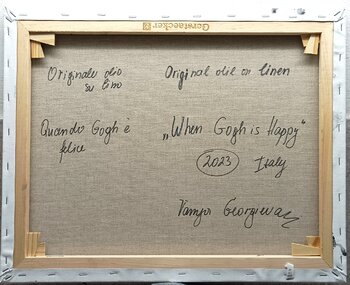 Gerstaecker
Originale olio
su lino
Original oil on linen
Quando Gogh è
felice
„When Gogh is Happy"
2023
Italy
Georgieva